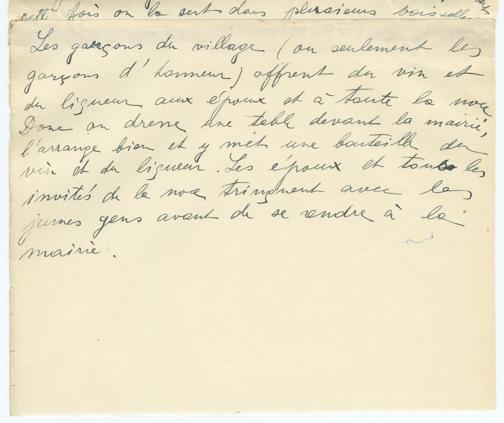 fois on la sert dans plusieurs
Les garçons du village (ou seulement les
garçons d'honneur) offrent du vin et
du liqueur aux époux et à toute la noce
Donc on dresse une table devant la mairie,
l'arrange bien et y met une bouteille du
vin et du liqueur. Les époux et tous les
invités de la noce trinquent avec les
jeunes gens avant de se rendre à la
mairie.